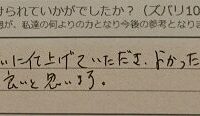 けられていかがでしたか？（ズバリ10
想が、私達の何よりの力となり今後の参考となりま
いに仕上げていただき、よかった
良いと思います。